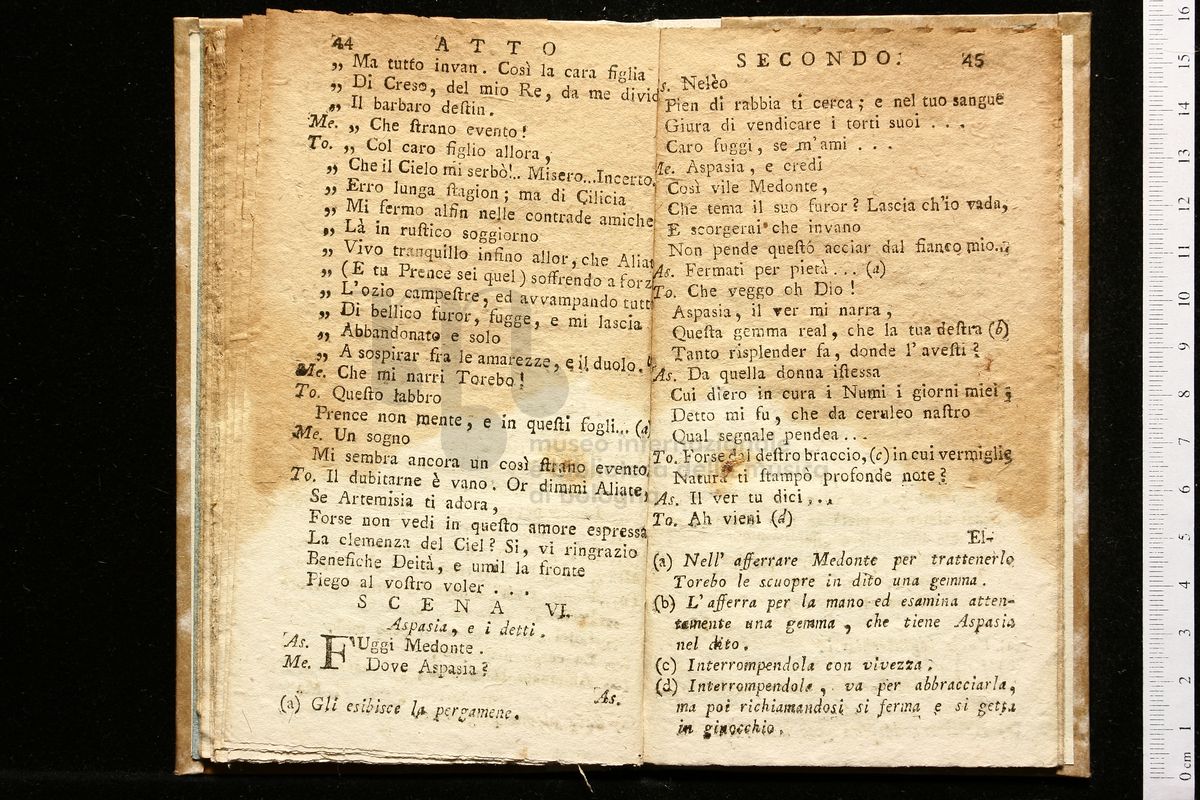 44 ATTO
„ Ma tutto invan. Così la cara figlia
„ Di Creso, del mio Re, da me divid
„ Il barbaro destin.
Me. „ Che strano evento!
To. „ Col caro figlio allora,
„ Che il Cielo mi serbò!.. Misero...Incerto
„ Erro lunga stagion; ma di Cilicia
„ Mi fermo alfin nelle contrade amiche
„ Là in rustico soggiorno
„ Vivo tranquillo infino allor, che Aliat
„ (E tu Prence sei quel) soffrendo a forz
„ L'ozio campestre, ed avvampando tutt
„ Di bellico furor, fugge, e mi lascia
„ Abbandonato e solo
„ A sospirar fra le amarezze, e il duolo.
Me. Che mi narri Torebo!
To. Questo labbro
Prence non mente, e in questi fogli... (a)
Me. Un sogno
Mi sembra ancora un così strano evento,
To. Il dubitarne è vano. Or dimmi Aliate,
Se Artemisia ti adora,
Forse non vedi in questo amore espressa
La clemenza del Ciel? Si, vi ringrazio
Benefiche Deità, e umil la fronte
Piego al vostro voler . . .
SCENA VI.
Aspasia, e i detti.
As. FUggi Medonte.
Me. Dove Aspasia?
As.
(a) Gli esibisce la pergamene.
SECONDO. 45
s. Neleo
Pien di rabbia ti cerca; e nel tuo sangue
Giura di vendicare i torti suoi . . .
Caro fuggi, se m'ami . . .
Me. Aspasia, e credi
Così vile Medonte,
Che tema il suo furor? Lascia ch'io vada,
E scorgerai che invano
Non pende questo acciar dal fianco mio...
As. Fermati per pietà... (a)
To. Che veggo oh Dio!
Aspasia, il ver mi narra,
Questa gemma real, che la tua destra (b)
Tanto risplender fa, donde l'avesti?
As. Da quella donna istessa
Cui diero in cura i Numi i giorni miei;
Detto mi fu, che da ceruleo nastro
Qual segnale pendea...
To. Forse dal destro braccio, (c) in cui vermiglie
Natura ti stampò profonde note?
As. Il ver tu dici...
To. Ah vieni (d)
El-
(a) Nell' afferrare Medonte per trattenerlo
Torebo le scuopre in dito una gemma.
(b) L'afferra per la mano ed esamina atten-
tamente una gemma, che tiene Aspasia
nel dito.
(c) Interrompendola con vivezza.
(d) Interrompendole, va per abbracciarla,
ma poi richiamandosi si ferma e si getta
in ginocchio.
museo internazionale
di bologna
0 cm 1 2 3 4 5 6 7 8 9 10 11 12 13 14 15 16